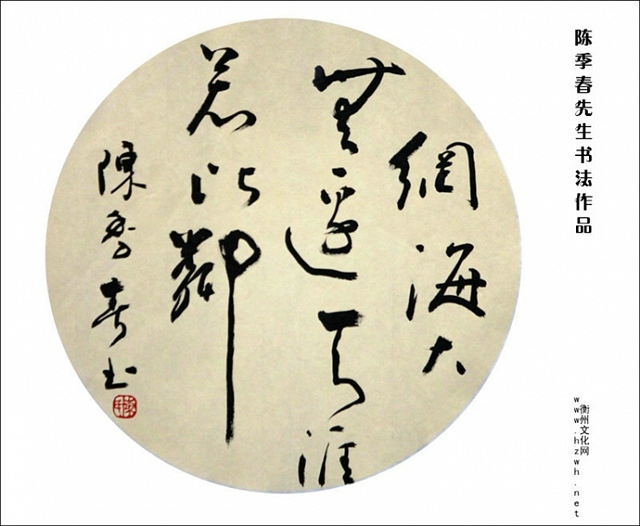 陈季春先生书法作品
衡州文化网
www.hzwh.net
網海大
無邊天涯
若比鄰
陳季春书